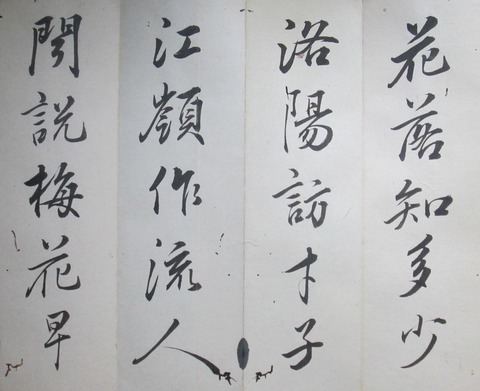 花落知多少
洛陽訪才子
江嶺作流人
聞說梅花早